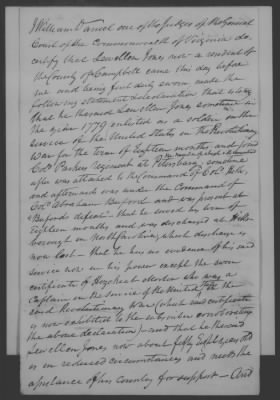 I William Daniel one of the Judges of the General
Court of the Commonwealth of Virginia do
certify that Lewellen Jones now a resident of
the County of Campbell came this day before
me and being first duly sworn made the
following statement & declaration that is to say
that he the said Lewellen Jones sometime in
the year 1779 enlisted as a soldier in the
service of the United States in the Revolutionary
War for the term of Eighteen months and joined
Colo. Parkers Regiment at Petersburg, sometime
after was attached to the Command of Colo.
and afterwards was under the Command of
Colo. Abraham Buford and was present at
"Bufords defeat" that he served his term of
Eighteen months and was discharged at Hills-
borough in North Carolina, which discharge is
now lost - that he has no evidence of his said
service now in his power except the
certificate of who was a
Captain in the service of the United States
said Revolutionary War (which said certificate
is now exhibited to the subscriber corroborating
the above declaration) - and that he the said
Lewellen Jones now about fifty Eight years old
is in reduced circumstances and needs the
assistance of his Country for support - And